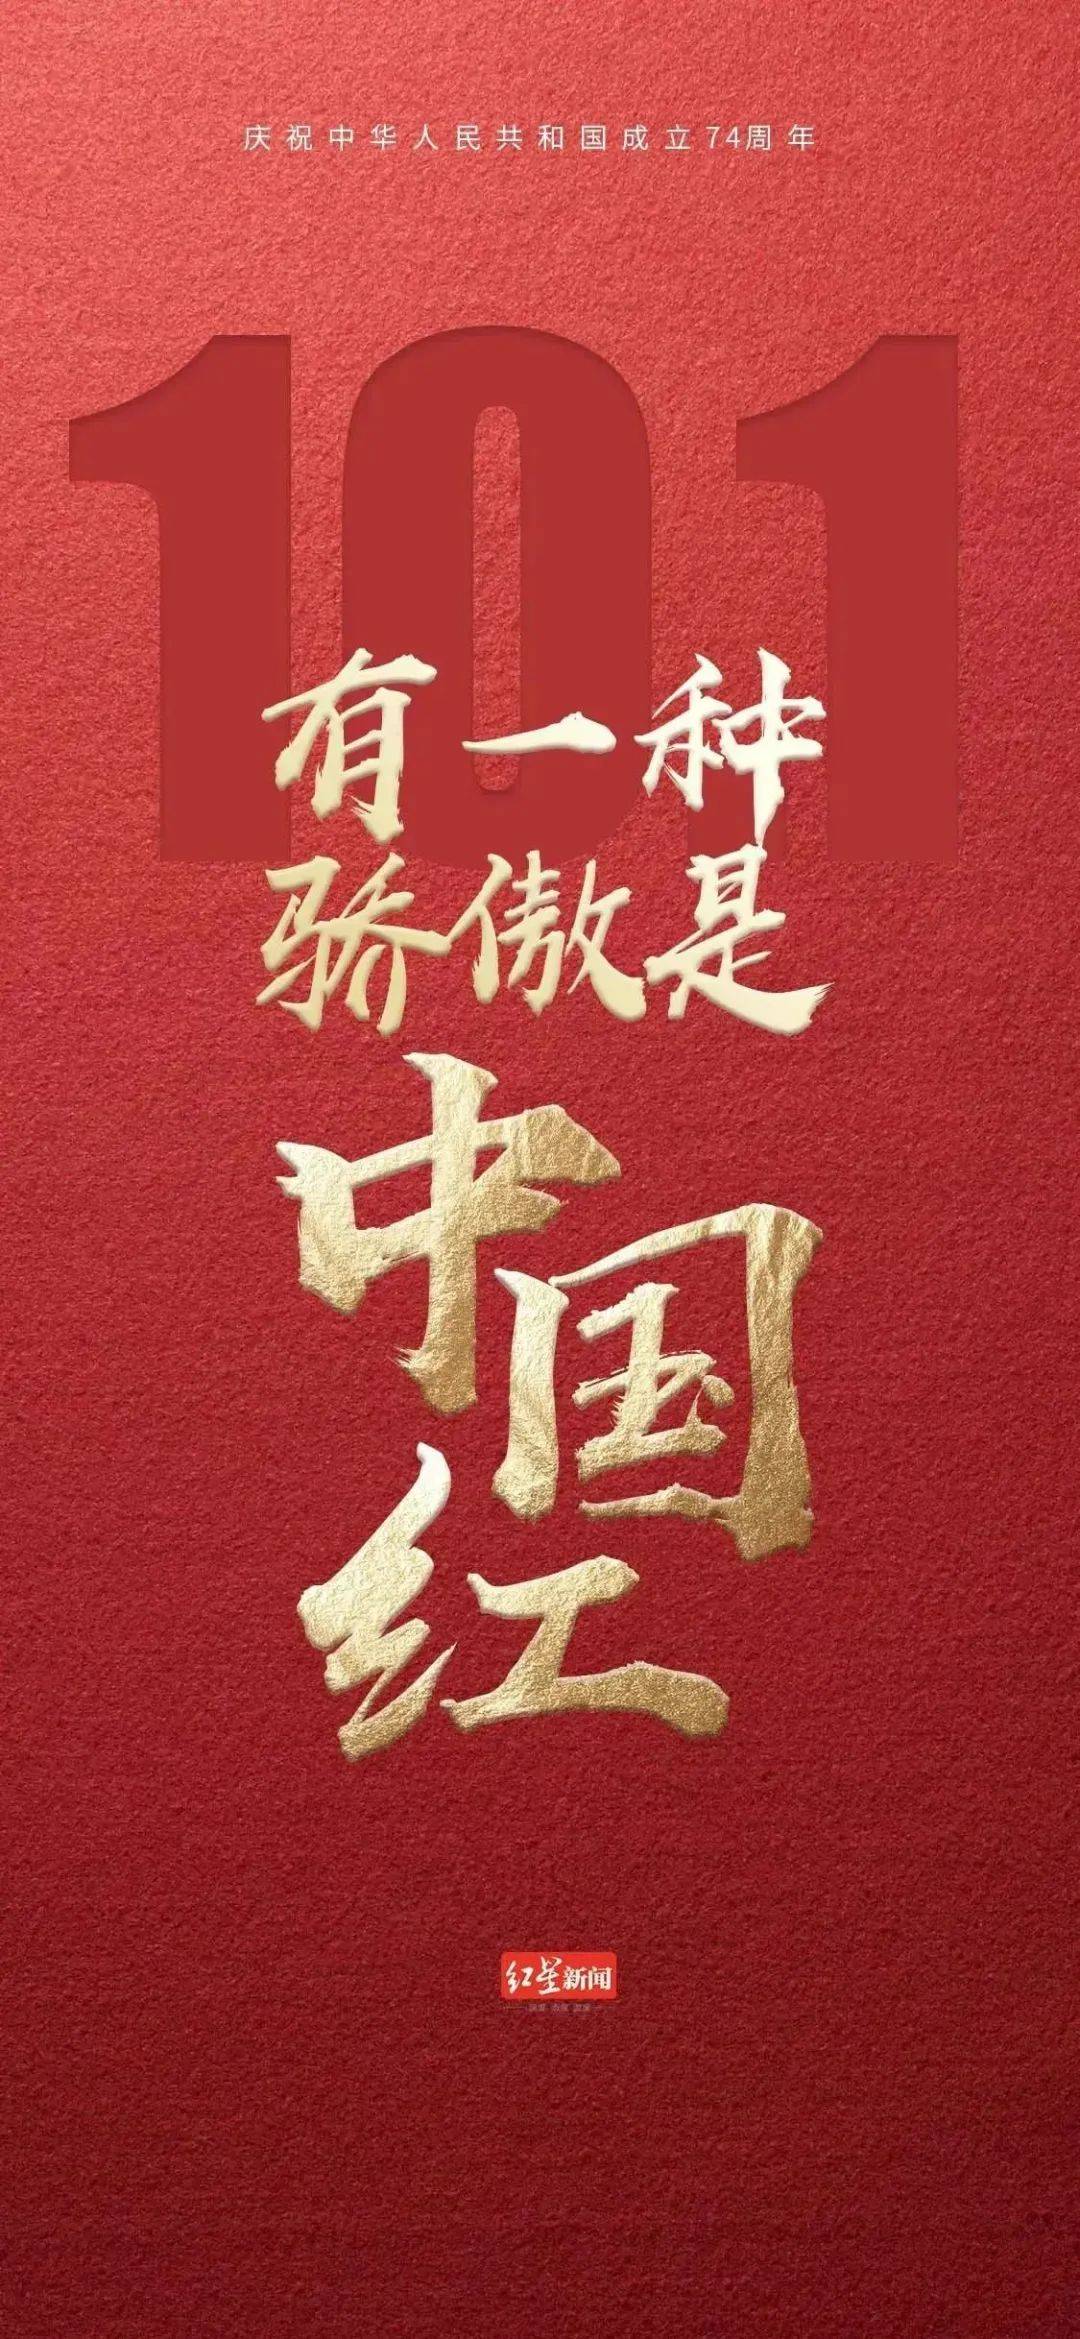 庆祝中华人民共和国成立74周年
10.1
有一种
骄傲是
中国
红
红星新闻